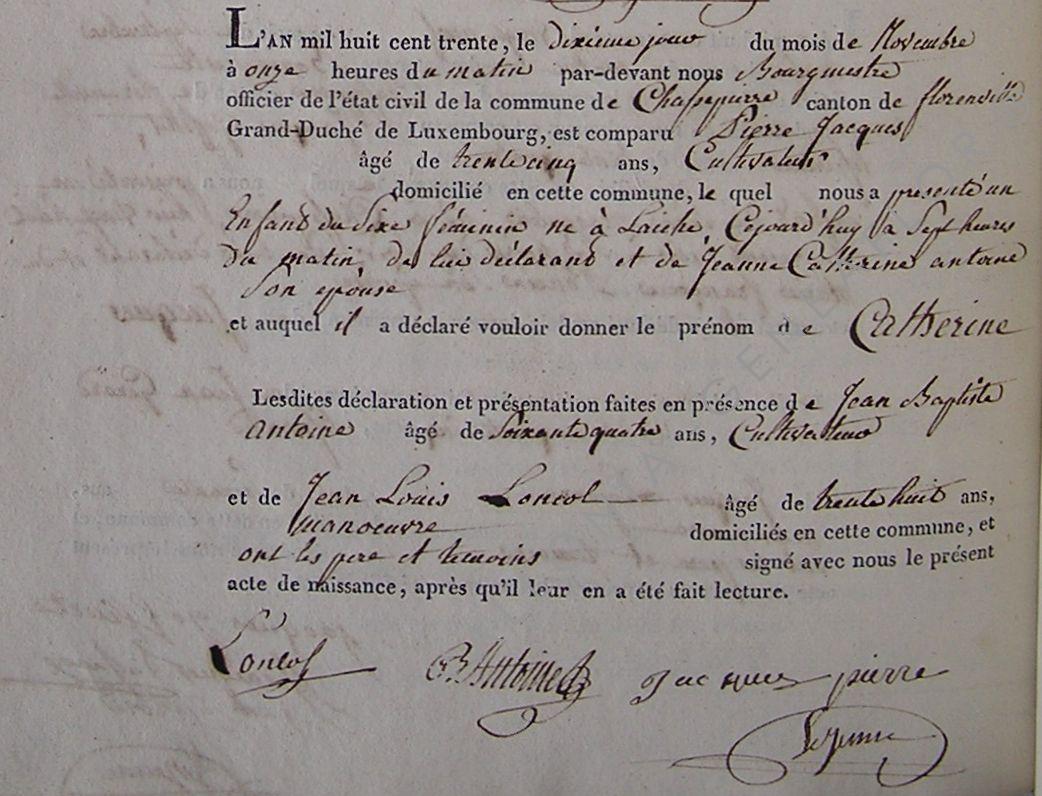 L'AN mil huit cent trente, le dixieme jour du mois de Novembre
à onze heures du matin par-devant nous Bourgmestre
officier de l'état civil de la commune de Chassepierre canton de florenville
Grand-Duché de Luxembourg, est comparu Pierre Jacques
âgé de trente cinq ans, Cultivateur
domicilié en cette commune, le quel nous a presenté un
Enfant du Sexe féminin né à Laiche, Cejourd'huy à Sept heures
du matin, de lui déclarant et de Jeanne Catherine antoine
Son epouse
et auquel il a déclaré vouloir donner le prénom de Catherine
Lesdites déclaration et présentation faites en présence de Jean Baptiste
antoine âgé de Soixante quatre ans, Cultivateur
et de Jean Louis Loncol âgé de trente huit ans,
manoeuvre domiciliés en cette commune, et
ont les pere et temoins signé avec nous le présent
acte de naissance, après qu'il leur en a été fait lecture.
Loncol JB Antoine Jacques pierre
Lejeune